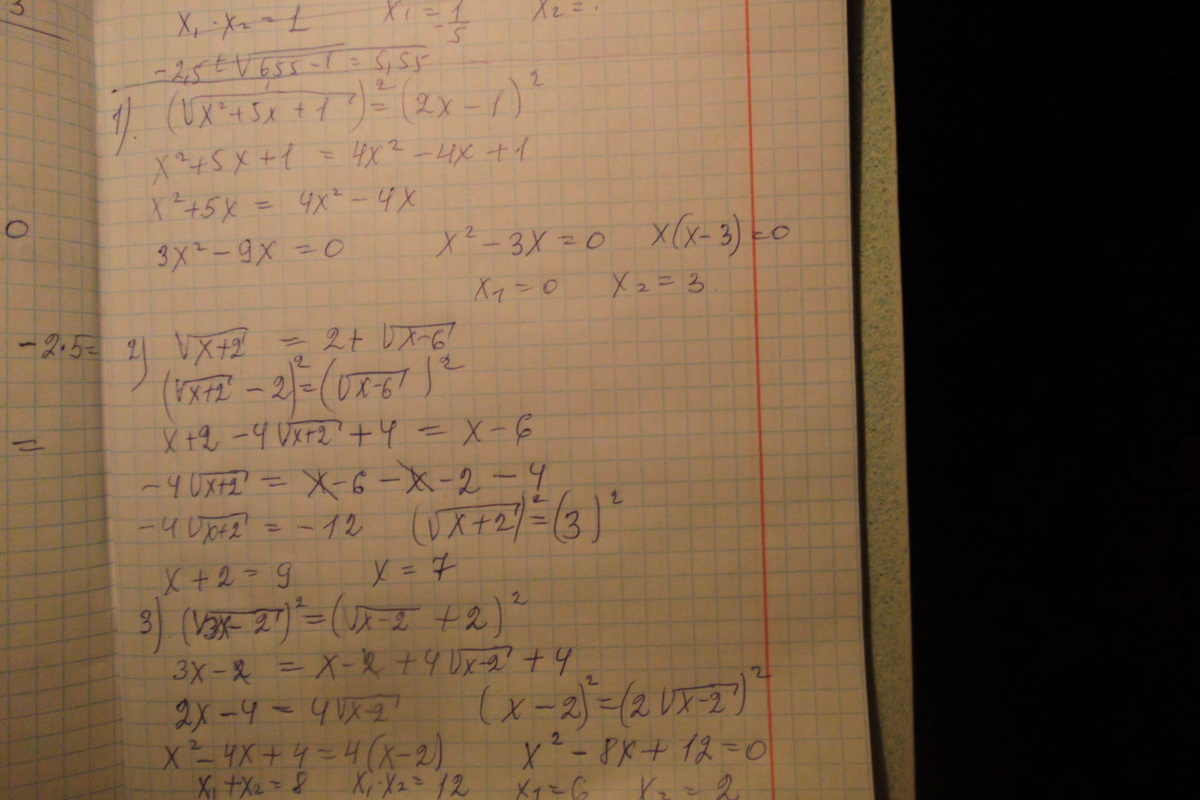 3
x₁·x₂ = 1 x₁ = 1/5 x₂ = .
-2,5 √655-1 = 5,55
1) (√x²+5x+1)² = (2x-1)²
x²+5x+1 = 4x²-4x+1
x²+5x = 4x²-4x
0
3x²-9x = 0 x²-3x = 0 x(x-3) = 0
x₁ = 0 x₂ = 3.
-2·5=
2) √x+2 = 2+ √x-6
(√x+2 - 2)² = (√x-6)²
=
x+2 -4√x+2 +4 = x-6
-4√x+2 = x-6-x-2-4
-4√x+2 = -12 (√x+2)² = (3)²
x+2 = 9 x = 7
3). (√3x-2)² = (√x-2 + 2)²
3x-2 = x-2 +4√x-2 +4
2x-4 = 4√x-2 (x-2)² = (2√x-2)²
x²-4x+4 = 4(x-2) x²-8x+12 = 0
x₁+x₂ = 8 x₁·x₂ = 12 x₁ = 6 x₂ = 2